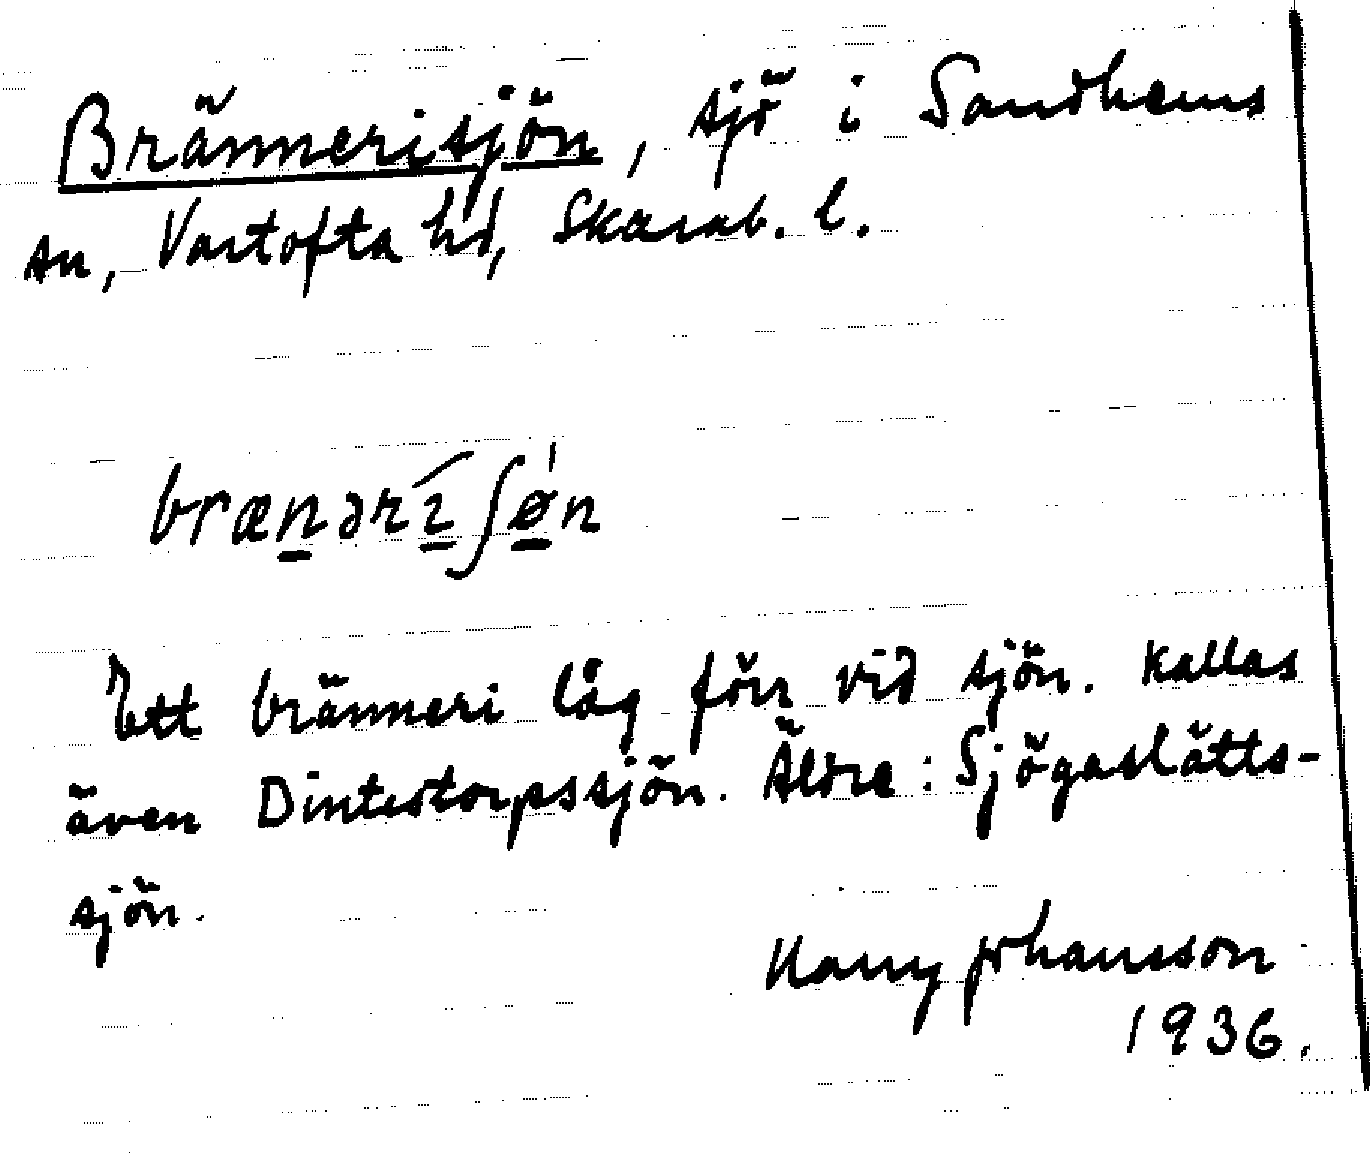 Brännerisjön, sjö i Sandhems
sn, Vartofta hd, Skarab. l.
brænərɪ́ʃø̍n
Ett bränneri låg förr vid sjön. Kallas
även Dintestorpssjön. Äldre: Sjögaslätts-
sjön.
Harry Johansson
1936.